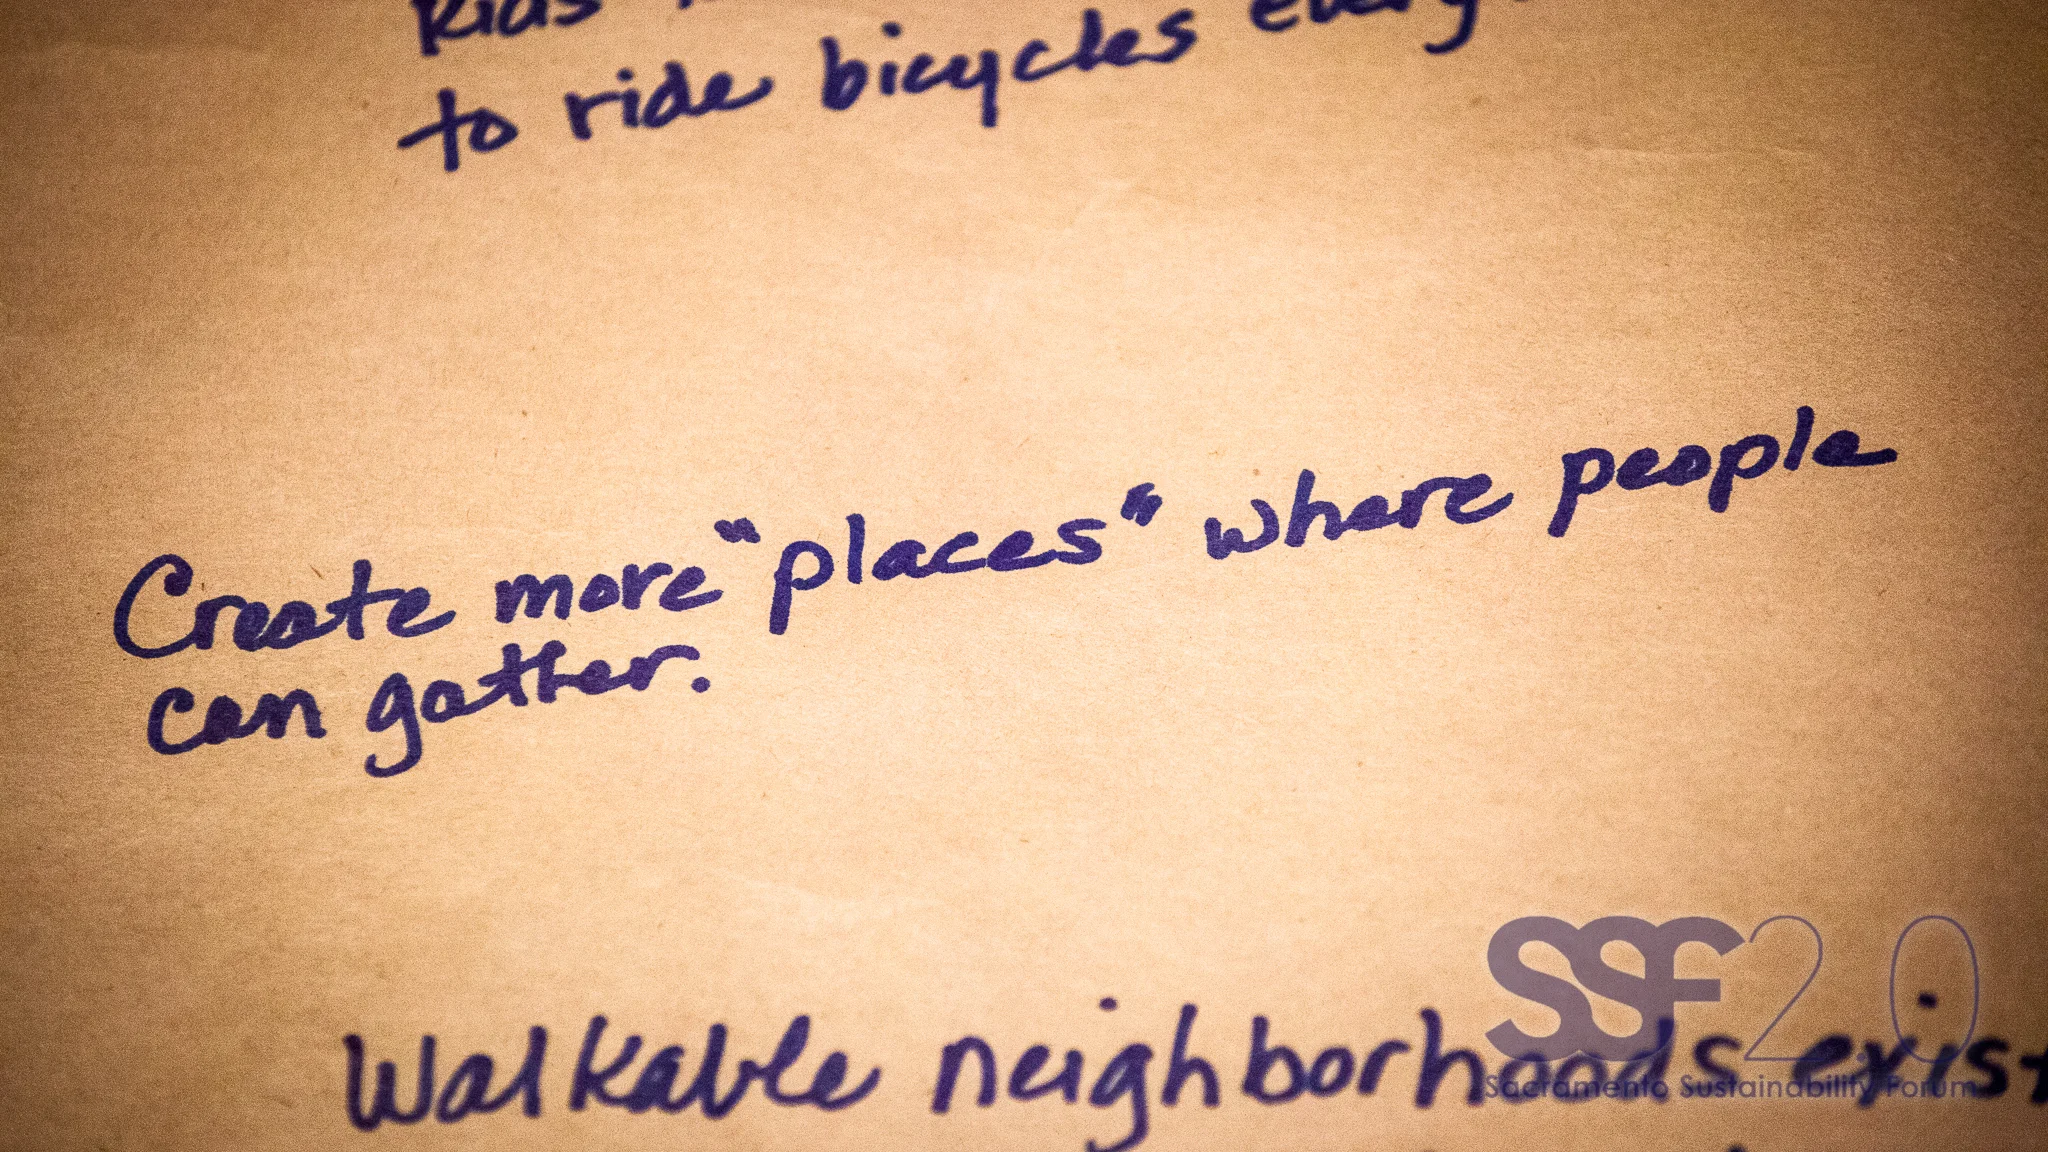 Kids
to ride bicycles
Create more "places" where people
can gather.
Walkable neighborhoods exist
SSF2.0
Sacramento Sustainability Forum